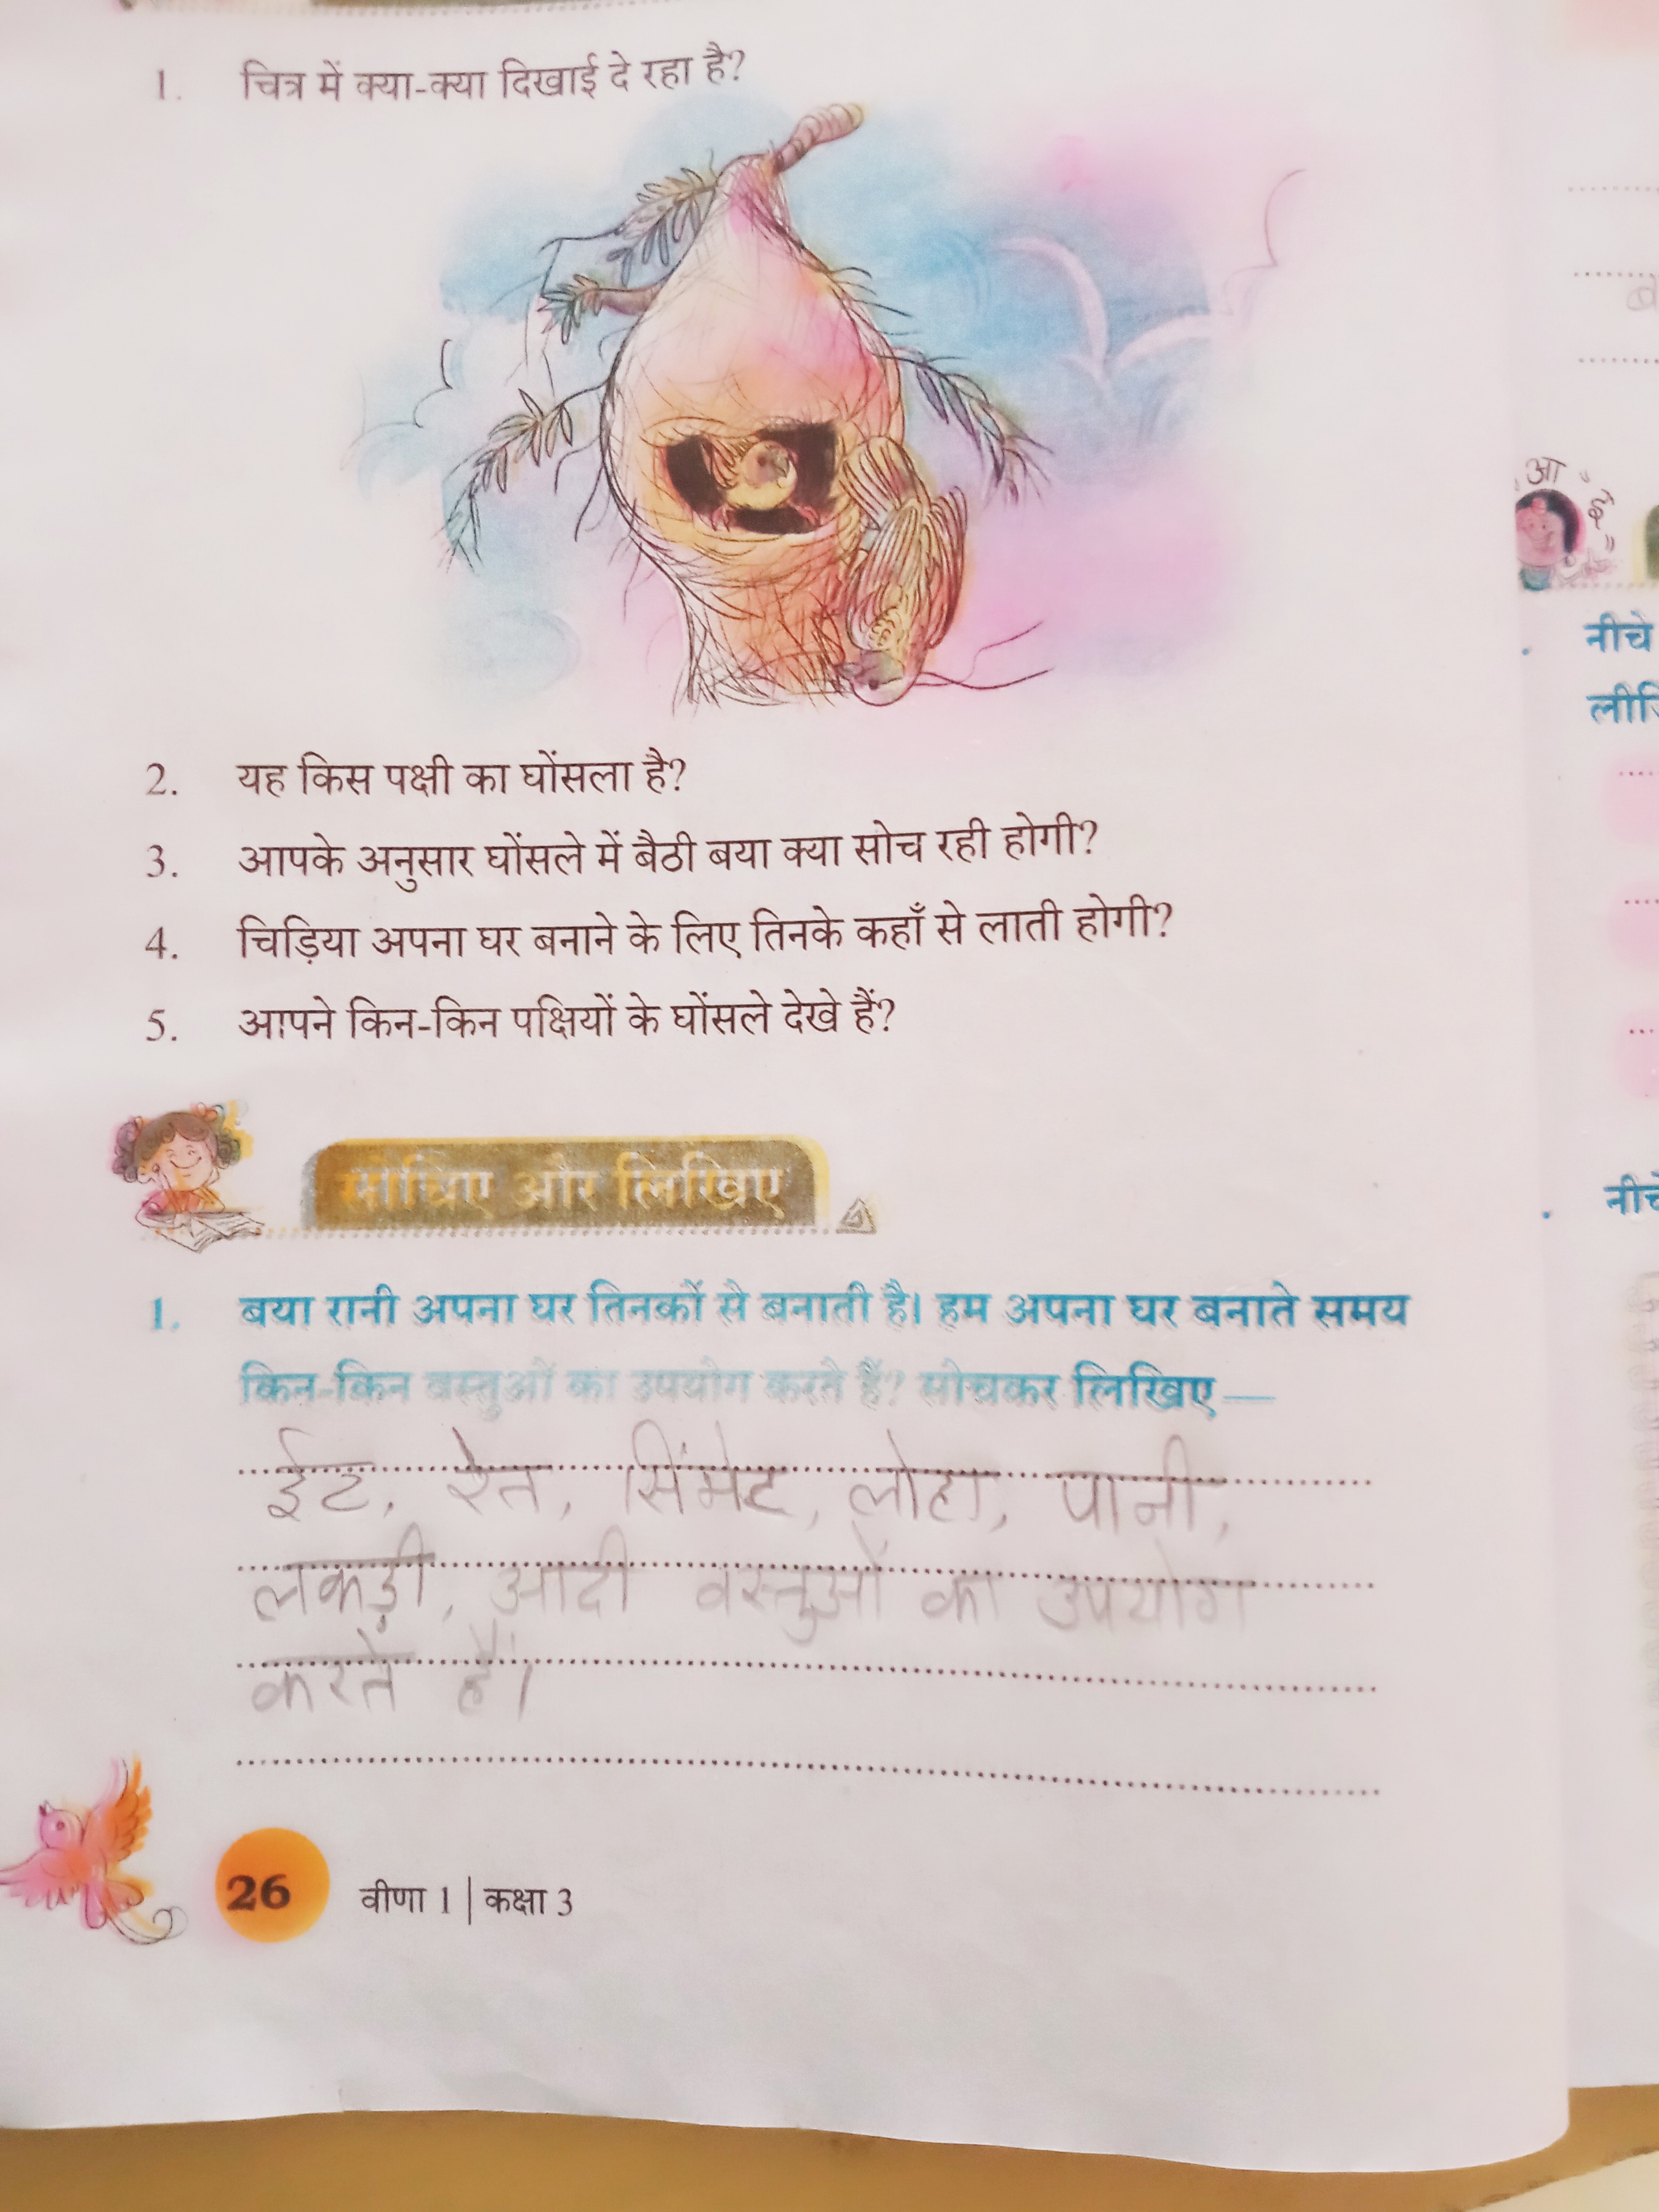 1. चित्र में क्या-क्या दिखाई दे रहा है?
2. यह किस पक्षी का घोंसला है?
3. आपके अनुसार घोंसले में बैठी बया क्या सोच रही होगी?
4. चिड़िया अपना घर बनाने के लिए तिनके कहाँ से लाती होगी?
5. आपने किन-किन पक्षियों के घोंसले देखे हैं?
सोचिए और लिखिए
1. बया रानी अपना घर तिनकों से बनाती है। हम अपना घर बनाते समय
किन-किन वस्तुओं का उपयोग करते हैं? सोचकर लिखिए—
ईट, रेत, सिंमेट, लोहा, पानी,
लकड़ी, आदी वस्तुओं का उपयोग
करते हैं।
26 वीणा 1 | कक्षा 3
आ
ई
नीचे